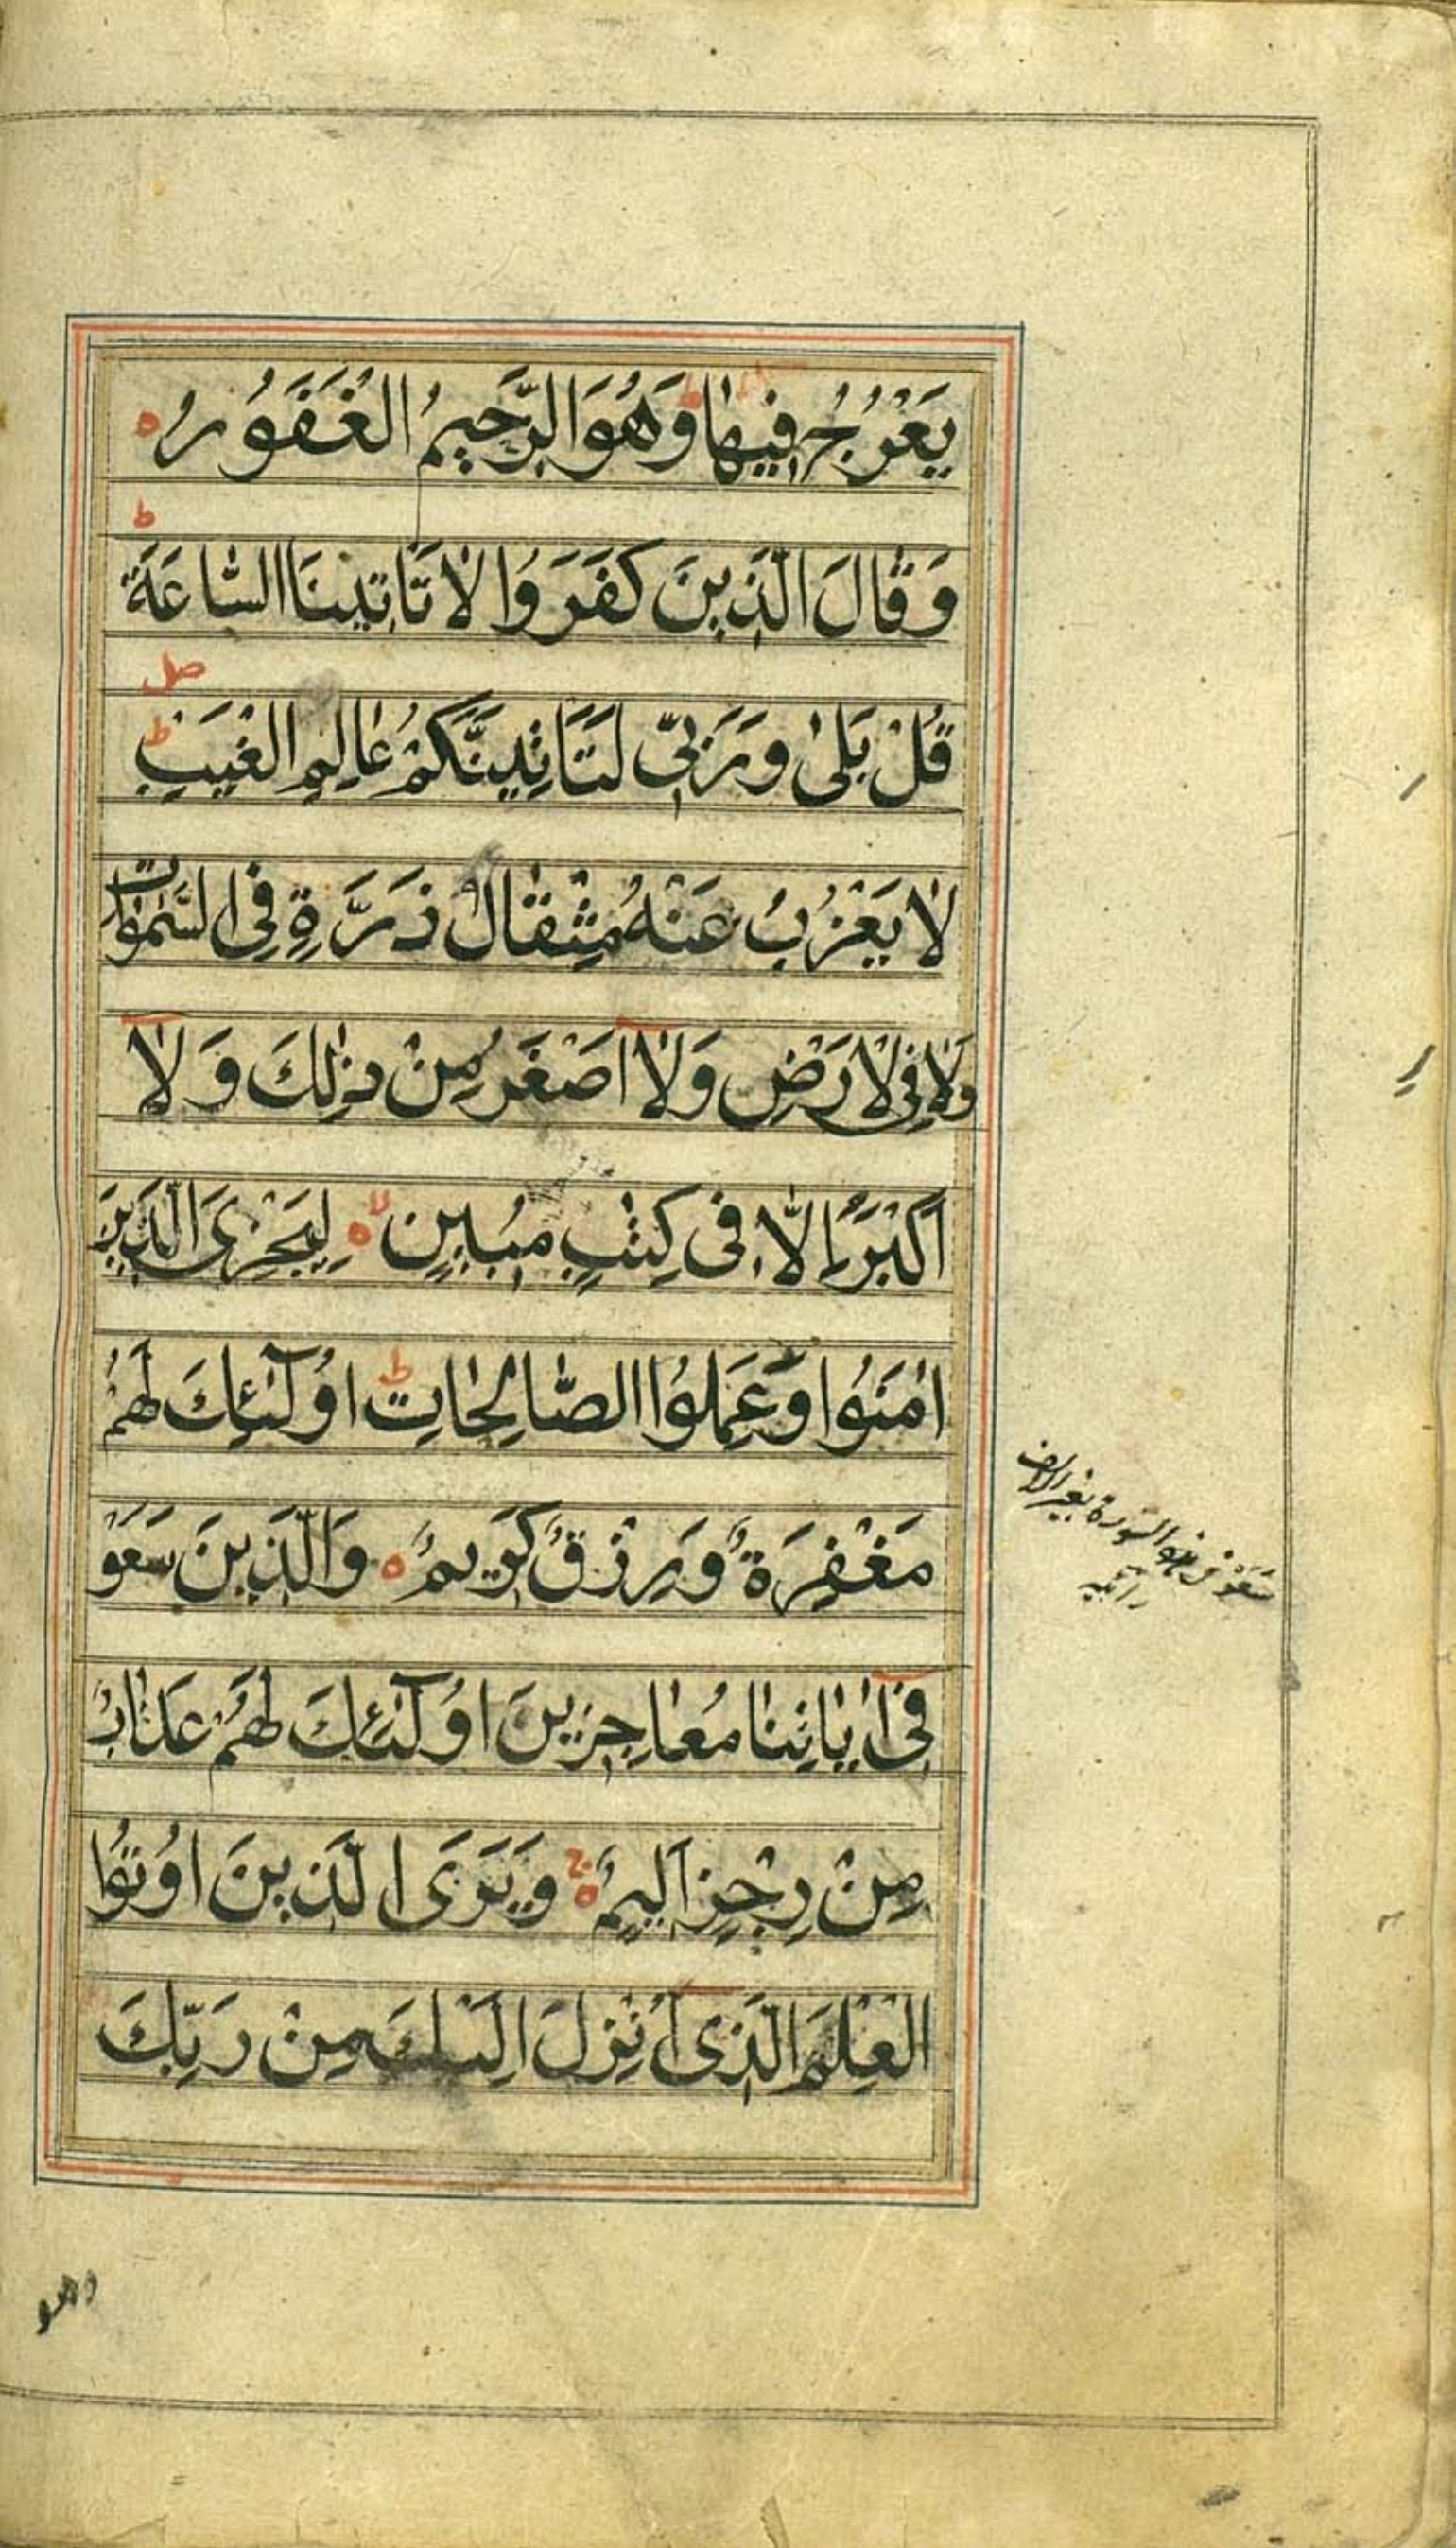 يَعْرُجُ فِيهَا ط وَهُوَ الرَّحِيمُ الْغَفُورُ ه
وَقَالَ الَّذِينَ كَفَرُوا لَا تَاتِينَا السَّاعَةُ ط
قُلْ بَلٰى وَرَبِّى لَتَاتِيَنَّكُمْ عَالِمِ الْغَيْبِ ط صل
لَا يَعْزُبُ عَنْهُ مِثْقَالُ ذَرَّةٍ فِى السَّمٰوَاتِ
وَلَا فِى لْاَرْضِ وَلَا اَصْغَرُ مِنْ ذٰلِكَ وَلَا
اَكْبَرُ اِلَّا فِى كِتٰبٍ مُبِينٍ ه لا لِيَجْزِىَ الَّذِينَ
اٰمَنُوا وَعَمِلُوا الصَّالِحَاتِ ط اُولٰٓئِكَ لَهُمْ
مَغْفِرَةٌ وَرِزْقٌ كَرِيمٌ ه وَالَّذِينَ سَعَوْ
فِىٓ اٰيَاتِنَا مُعَاجِزِينَ اُولٰٓئِكَ لَهُمْ عَذَابٌ
مِنْ رِجْزٍ اَلِيمٌ ه وَيَرَى الَّذِينَ اُوتُوا
الْعِلْمَ الَّذِىٓ اُنْزِلَ اِلَيْكَ مِنْ رَبِّكَ
سعو فى هذه السورة بغير الالف
وهو